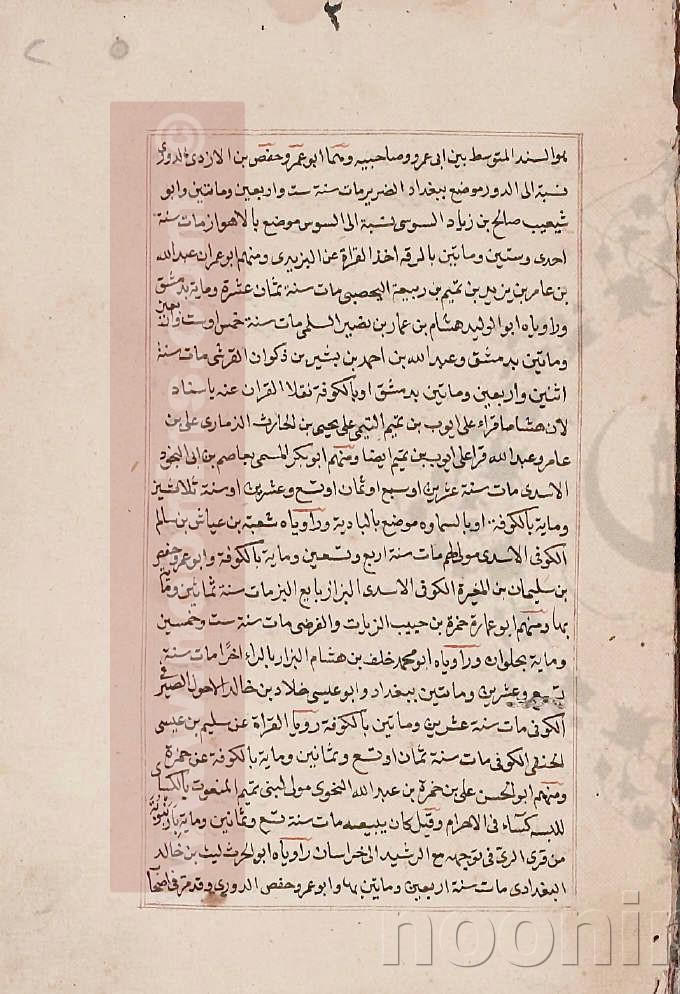 ٢
هو السند المتوسط بين ابى عمرو وصاحبيه وهما ابو عمرو حفص بن الازدى الدورى
نسبة الى الدور موضع ببغداد الضرير مات سنة ست واربعين وماتين وابو
شيعيب صالح بن زياد السوسى نسبة الى السوس موضع بالاهواز مات سنة
احدى وستين وماتين بالرقه اخذا القراة عن اليزيدى ومنهم ابو عمران عبد الله
بن عامر بن يزيد بن تميم بن ربيعة اليحصبى مات سنة ثمان عشرة وماية بدمشق
وراوياه ابو الوليد هشام بن عمار بن نصير السلمى مات سنة خمس او ست واربعين
وماتين بدمشق وعبد الله بن احمد بن بشير بن ذكوان القرشى مات سنة
اثنين واربعين وماتين بدمشق او بالكوفة نقلا القران عنه باسناد
لان هشاما قراء على ايوب بن تميم التيمى على يحيى بن الحارث الذمارى على بن
عامر وعبد الله قرا على ايوب بن تميم ايضا ومنهم ابو بكر المسمى بعاصم بن ابى النجود
الاسدى مات سنة عشرين او سبع او ثمان او تسع وعشرين او سنة ثلاثين
وماية بالكوفة او بالسماوه موضع بالبادية وراوياه شعبه بن عياش بن سالم
الكوفى الاسدى مولاهم مات سنة اربع وتسعين وماية بالكوفة وابو عمرو حفص
بن سليمان بن المغيرة الكوفى الاسدى البزاز بايع البز مات سنة ثمانين وماية
بها ومنهم ابو عمارة حمزة بن حبيب الزيات والفرضى مات سنة ست وخمسين
وماية بحلوان وراوياه ابو محمد خلف بن هشام البزار بالراء اخرا مات سنة
تسع وعشرين وماتين ببغداد وابو عيسى خلاد بن خالد الاحول الصيرفى
الكوفى مات سنة عشرين وماتين بالكوفة رويا القراة عن سليم بن عيسى
الحنفى الكوفى مات سنة ثمان او تسع وثمانين وماية بالكوفة عن حمزة
ومنهم ابو الحسن على بن حمزة بن عبد الله النحوى مولى لبنى تميم المنعوت بالكسائى
للبسه كساء فى الاحرام وقيل كان يبيعه مات سنة تسع وثمانين وماية
من قرى الرى فى توجهه مع الرشيد الى خراسان راوياه ابو الحرث ليث بن خالد
البغدادى مات سنة اربعين وماتين بها وابو عمرو حفص الدورى وقد مر فى
noonin